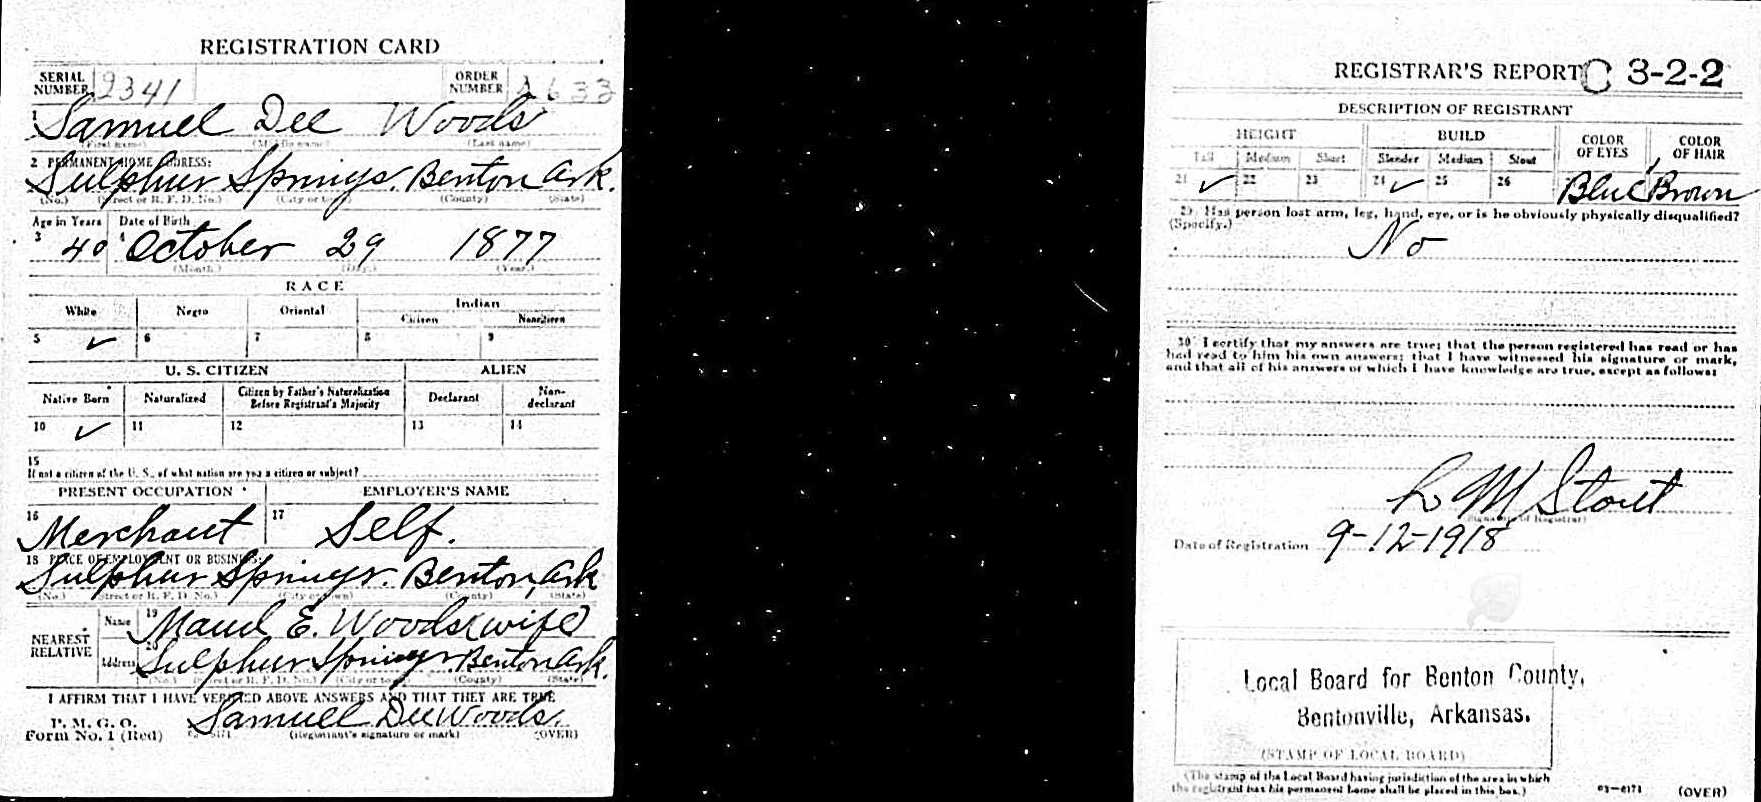 REGISTRATION CARD
SERIAL NUMBER 2341 ORDER NUMBER 2633
1 Samuel Dee Woods
(First name) (Middle name) (Last name)
2 PERMANENT HOME ADDRESS:
Sulphur Springs. Benton Ark.
(No.) (Street or R. F. D. No.) (City or town) (County) (State)
Age in Years Date of Birth
3 40 4 October 29 1877
(Month.) (Day.) (Year.)
RACE
White Negro Oriental Indian
Citizen Noncitizen
5 ✓ 6 7 8 9
U. S. CITIZEN ALIEN
Native Born Naturalized Citizen by Father's Naturalization Before Registrant's Majority Declarant Non-declarant
10 ✓ 11 12 13 14
15
If not a citizen of the U. S., of what nation are you a citizen or subject?
PRESENT OCCUPATION EMPLOYER'S NAME
16 Merchant 17 Self.
18 PLACE OF EMPLOYMENT OR BUSINESS:
Sulphur Springs. Benton, Ark
(No.) (Street or R. F. D. No.) (City or town) (County) (State)
NEAREST RELATIVE
Name 19 Maud E. Woods (wife)
Address 20 Sulphur Springs Benton Ark.
(No.) (Street or R. F. D. No.) (City or town) (County) (State)
I AFFIRM THAT I HAVE VERIFIED ABOVE ANSWERS AND THAT THEY ARE TRUE
P. M. G. O.
Form No. 1 (Red) Samuel Dee Woods
(Registrant's signature or mark) (OVER)
REGISTRAR'S REPORT C 3-2-2
DESCRIPTION OF REGISTRANT
HEIGHT BUILD COLOR OF EYES COLOR OF HAIR
Tall Medium Short Slender Medium Stout
21 ✓ 22 23 24 ✓ 25 26 Blue Brown
29 Has person lost arm, leg, hand, eye, or is he obviously physically disqualified?
(Specify.) No
30 I certify that my answers are true; that the person registered has read or has
had read to him his own answers; that I have witnessed his signature or mark,
and that all of his answers of which I have knowledge are true, except as follows:
L M Stout
(Signature of Registrar)
Date of Registration 9-12-1918
Local Board for Benton County,
Bentonville, Arkansas.
(STAMP OF LOCAL BOARD)
(The stamp of the Local Board having jurisdiction of the area in which
the registrant has his permanent home shall be placed in this box.)
03-6171 (OVER)